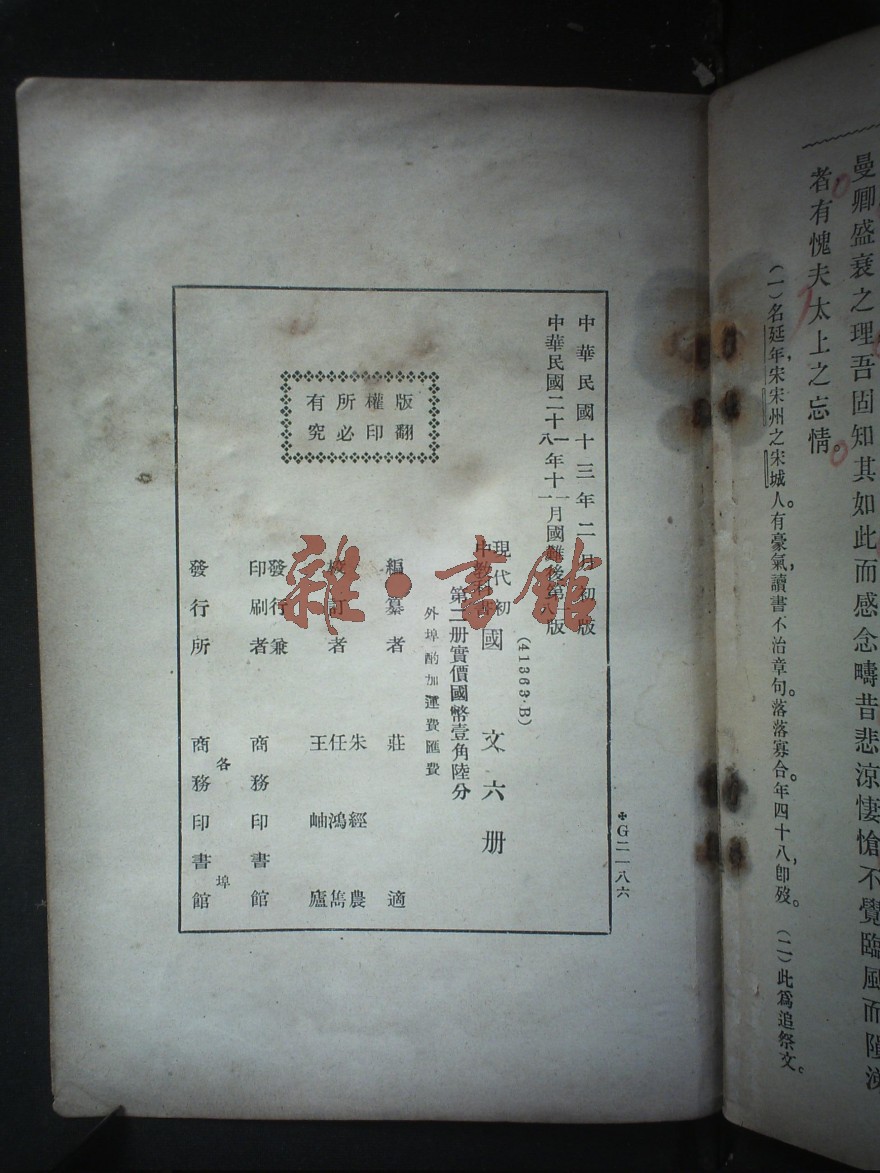 曼卿盛衰之理吾固知其如此而感念疇昔悲涼悽愴不覺臨風而隕涕
者有愧夫太上之忘情。
(一)名延年,宋宋州之宋城人。有豪氣,讀書不治章句。落落寡合。年四十八,卽歿。 (二)此爲追祭文。
G二一八六
中華民國十三年二月初版
中華民國二十 年十 月國難後第 版
(41363·B)
現代初
中教科書
國文六册
第二册實價國幣壹角陸分
外埠酌加運費匯費
編纂者 莊適
校訂者 朱經農
任鴻雋
王岫廬
發行兼
印刷者 商務印書館
發行所 各埠
商務印書館
版權所有
翻印必究
雜·書館